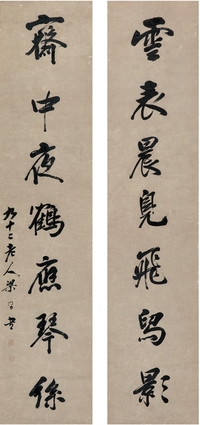 雲表晨見飛舄影
齋中夜鶴應琴絲
九十二老人梁同書